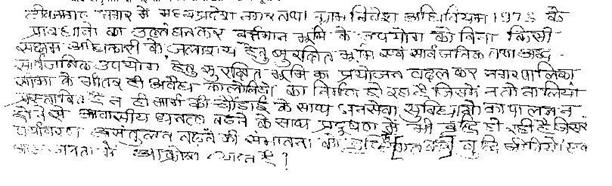 टीकमगढ़ नगर में मध्यप्रदेश नगर तथा ग्राम निवेश अधिनियम 1973 के
प्रावधानों का उल्लंघनकर वर्तमान भूमि के उपयोग को बिना किसी
सक्षम अधिकारी के, जलाशय हेतु सुरक्षित भूमि एवं सार्वजनिक तथा अर्द्ध
सार्वजनिक उपयोग हेतु सुरक्षित भूमि का प्रयोजन बदलकर नगरपालिका
सीमा के भीतर ही अवैध कालोनियों का निर्माण हो रहा है जिसमें न तो नालियां
प्रस्तावित हैं न ही मार्ग की चौड़ाई के साथ जनसेवा सुविधाओं का पालन न
होने से आवासीय घनत्व बढ़ने के साथ प्रदूषण में भी वृद्धि हो रही है जिससे
पर्यावरण असंतुलन बढ़ने की संभावना
जनता में आक्रोश व्याप्त है!